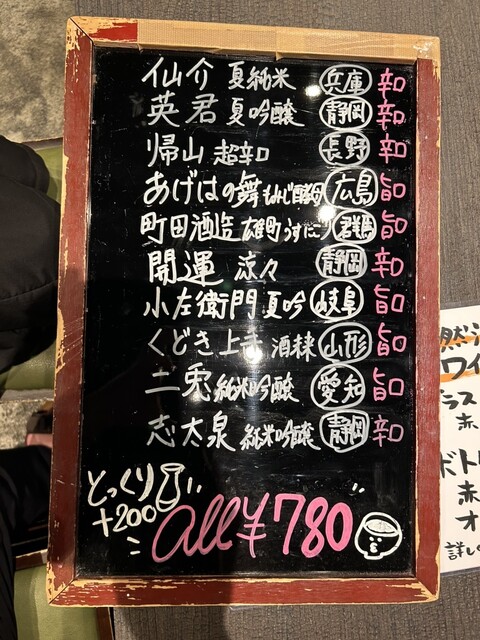 仙介 夏純米 兵庫 辛口
英君 夏吟醸 静岡 辛口
帰山 超辛口 長野 辛口
あげはの舞 もみじ酵母 広島 旨口
町田酒造 雄町うすにごり 群馬 旨口
開運 涼々 静岡 辛口
小左衛門 夏吟 岐阜 旨口
くどき上手 酒 山形 旨口
二兎 純米吟醸 愛知 旨口
志太泉 純米吟醸 静岡 辛口
とっくり
+200
all ¥780
然
ワイ
ラス
赤
ボト
赤
オ
詳し